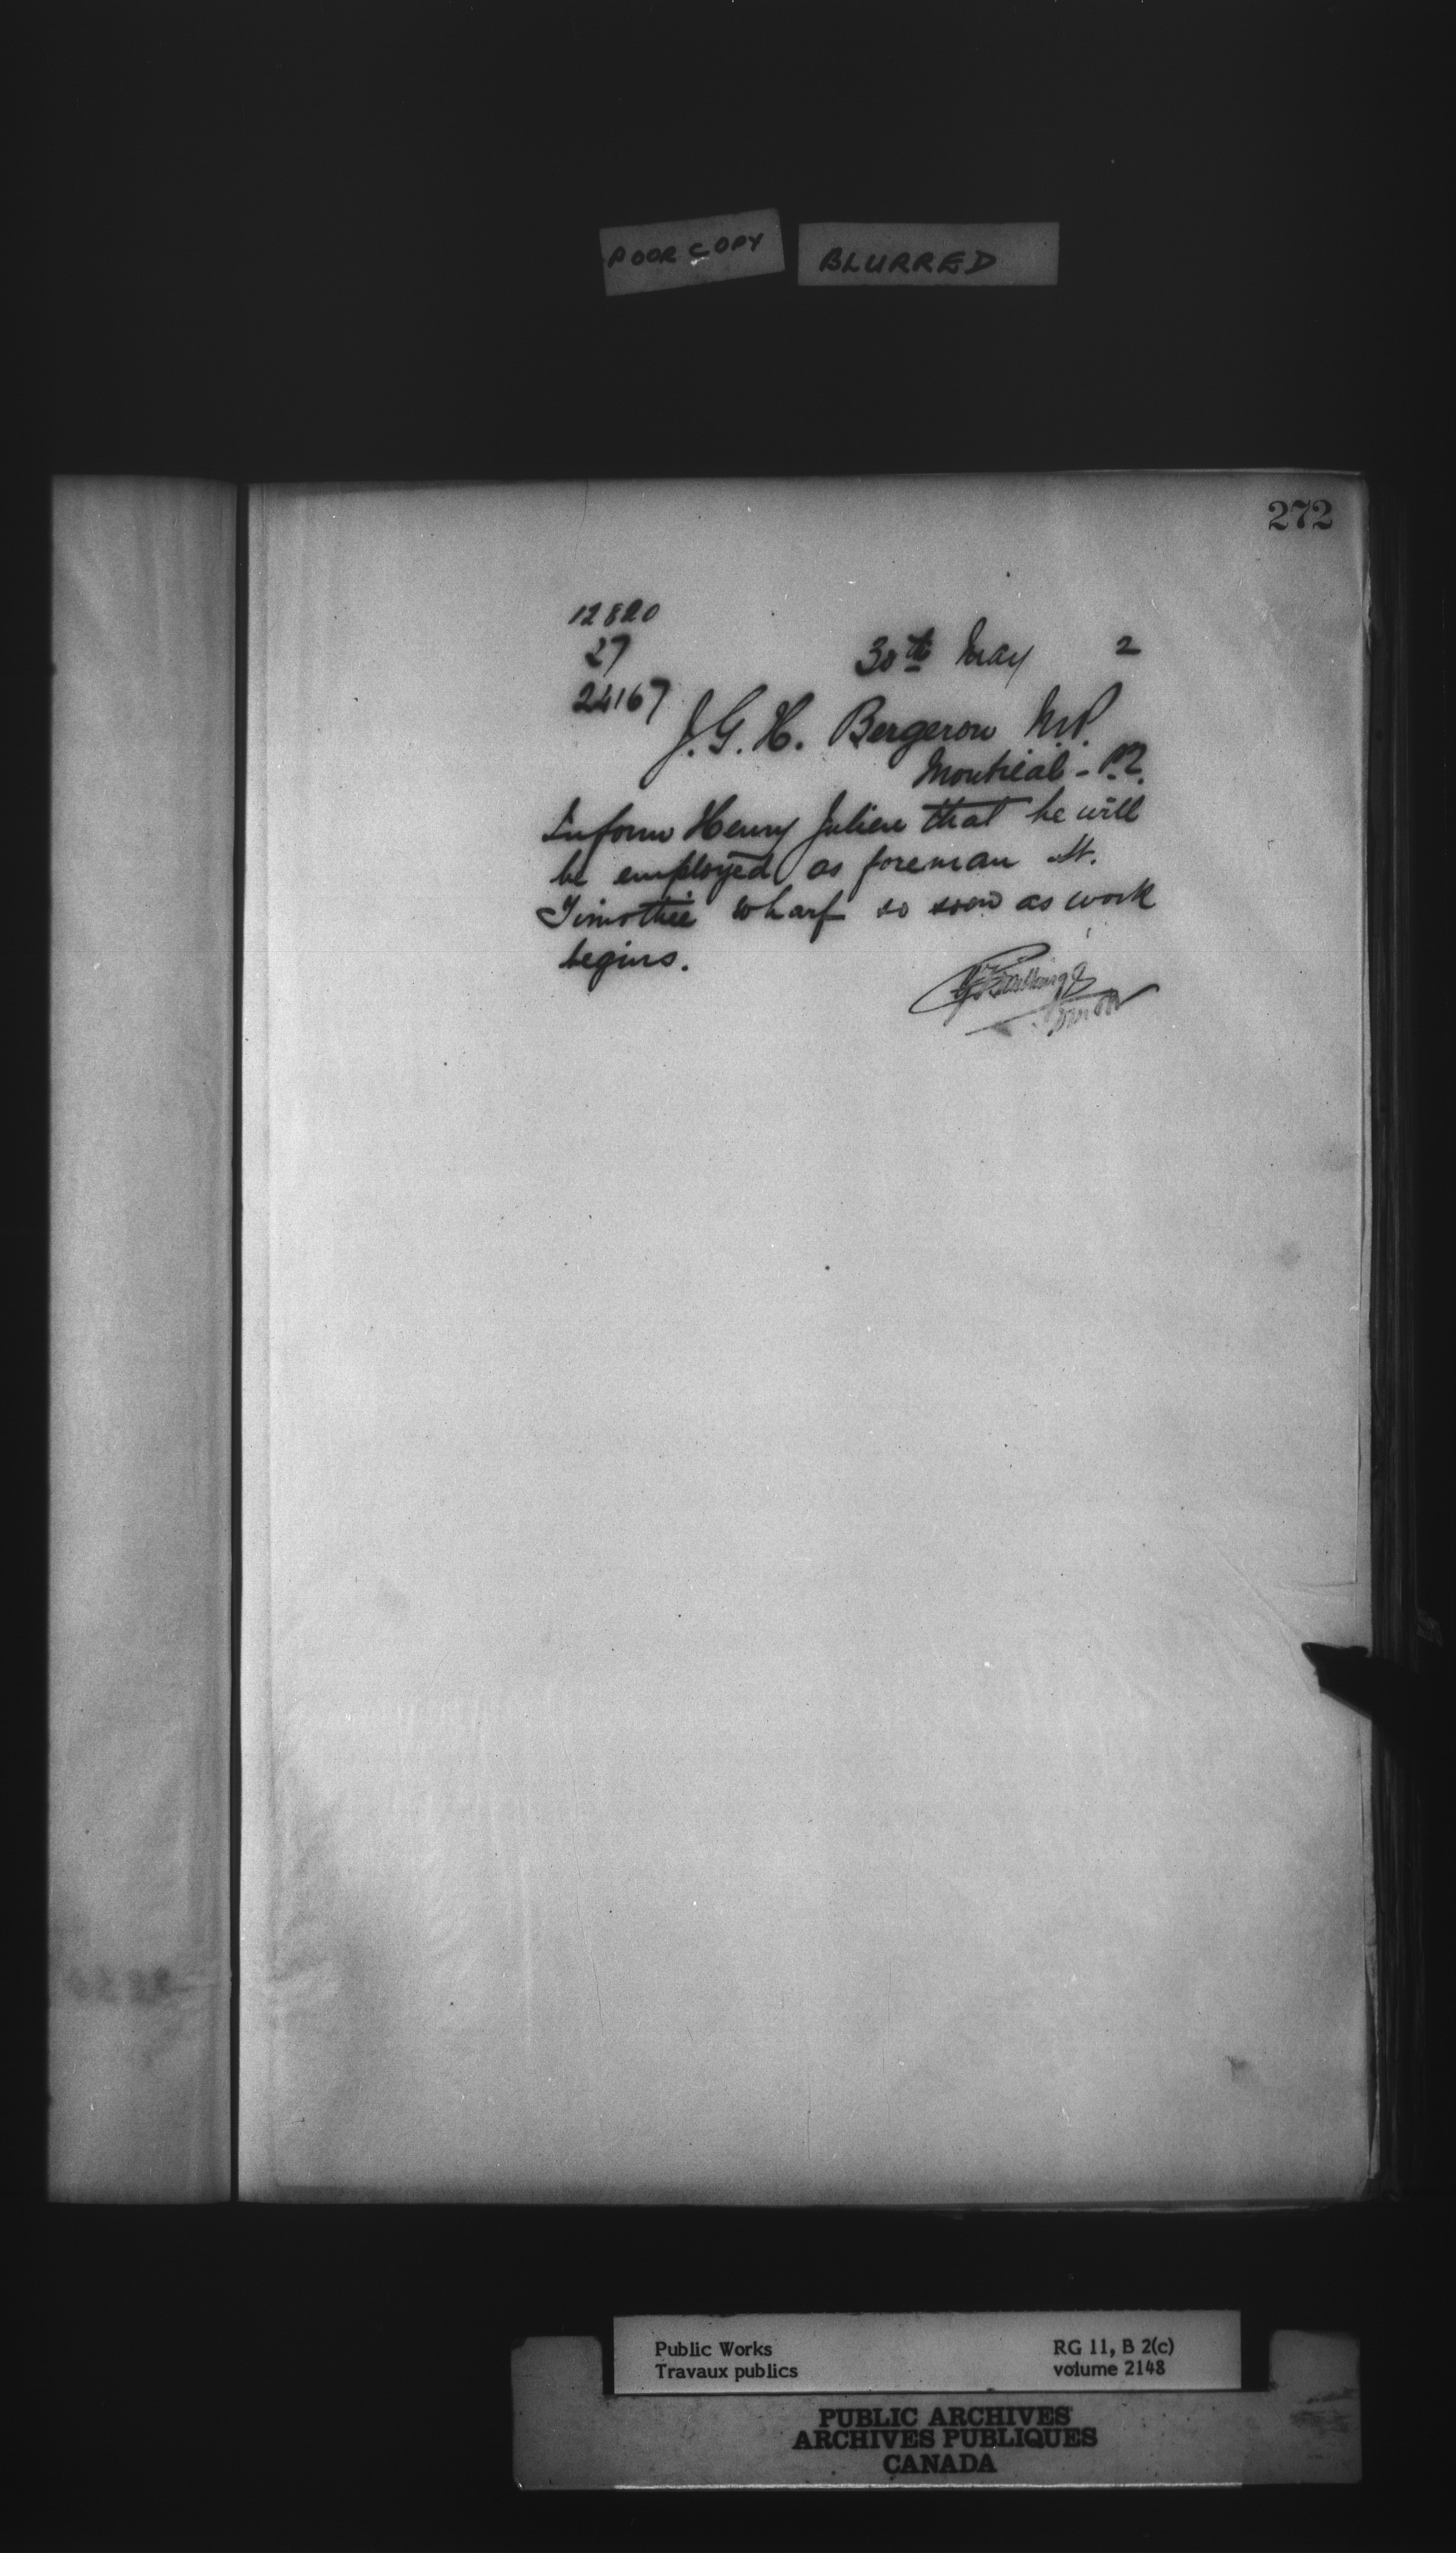 POOR COPY
BLURRED
272
12820
27
24167
30th May 2
J. G. H. Bergeron M.P.
Montreal - P.Q.
Inform Henry Julien that he will
be employed as foreman St.
Timothée wharf so soon as work
begins.
Public Works
Travaux publics
RG 11, B 2(c)
volume 2148
PUBLIC ARCHIVES
ARCHIVES PUBLIQUES
CANADA